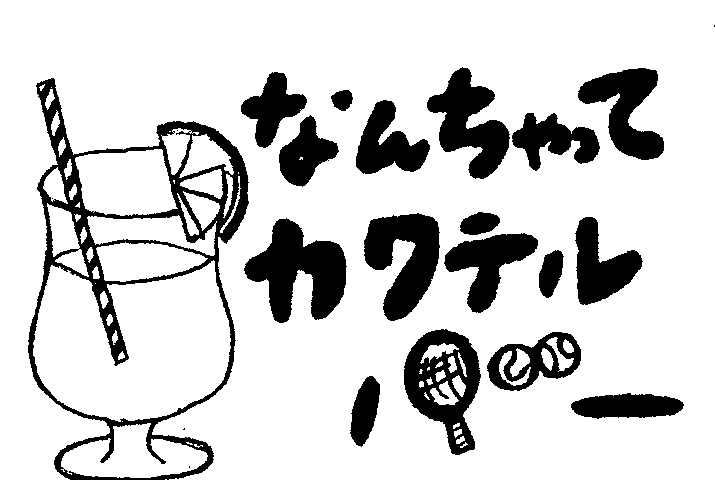 なんちゃって
カクテル
バー